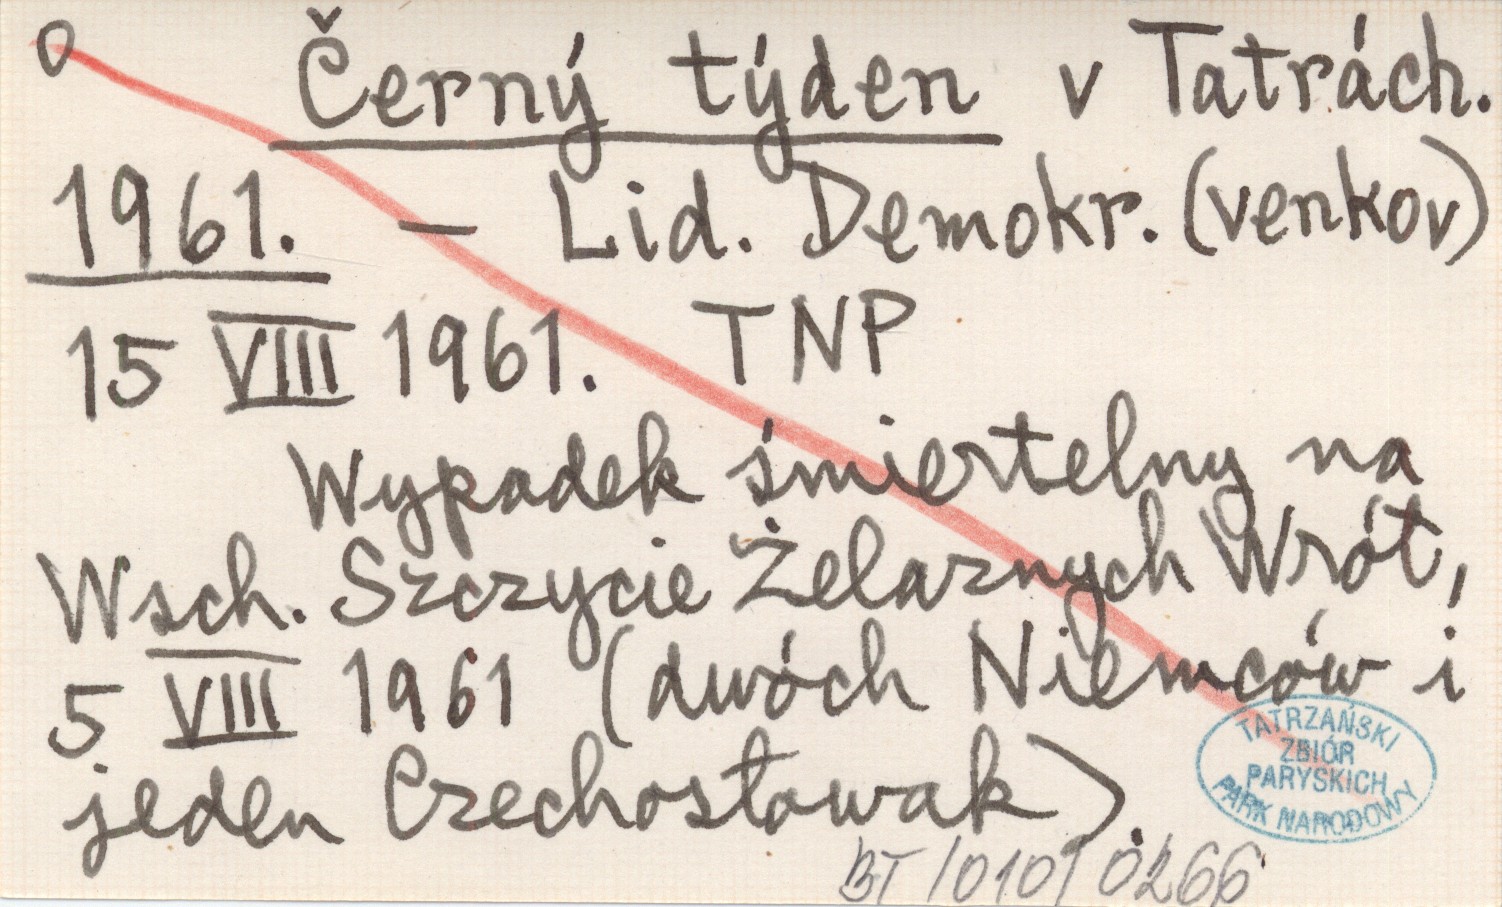 O Černý týden v Tatrách.
1961. — Lid. Demokr. (venkov)
15 VIII 1961. TNP
Wypadek śmiertelny na
Wsch. Szczycie Żelaznych Wrót,
5 VIII 1961 (dwóch Niemców i
jeden Czechosłowak).
TATRZAŃSKI
ZBIÓR
PARYSKICH
PARK NARODOWY
BT/010/0266